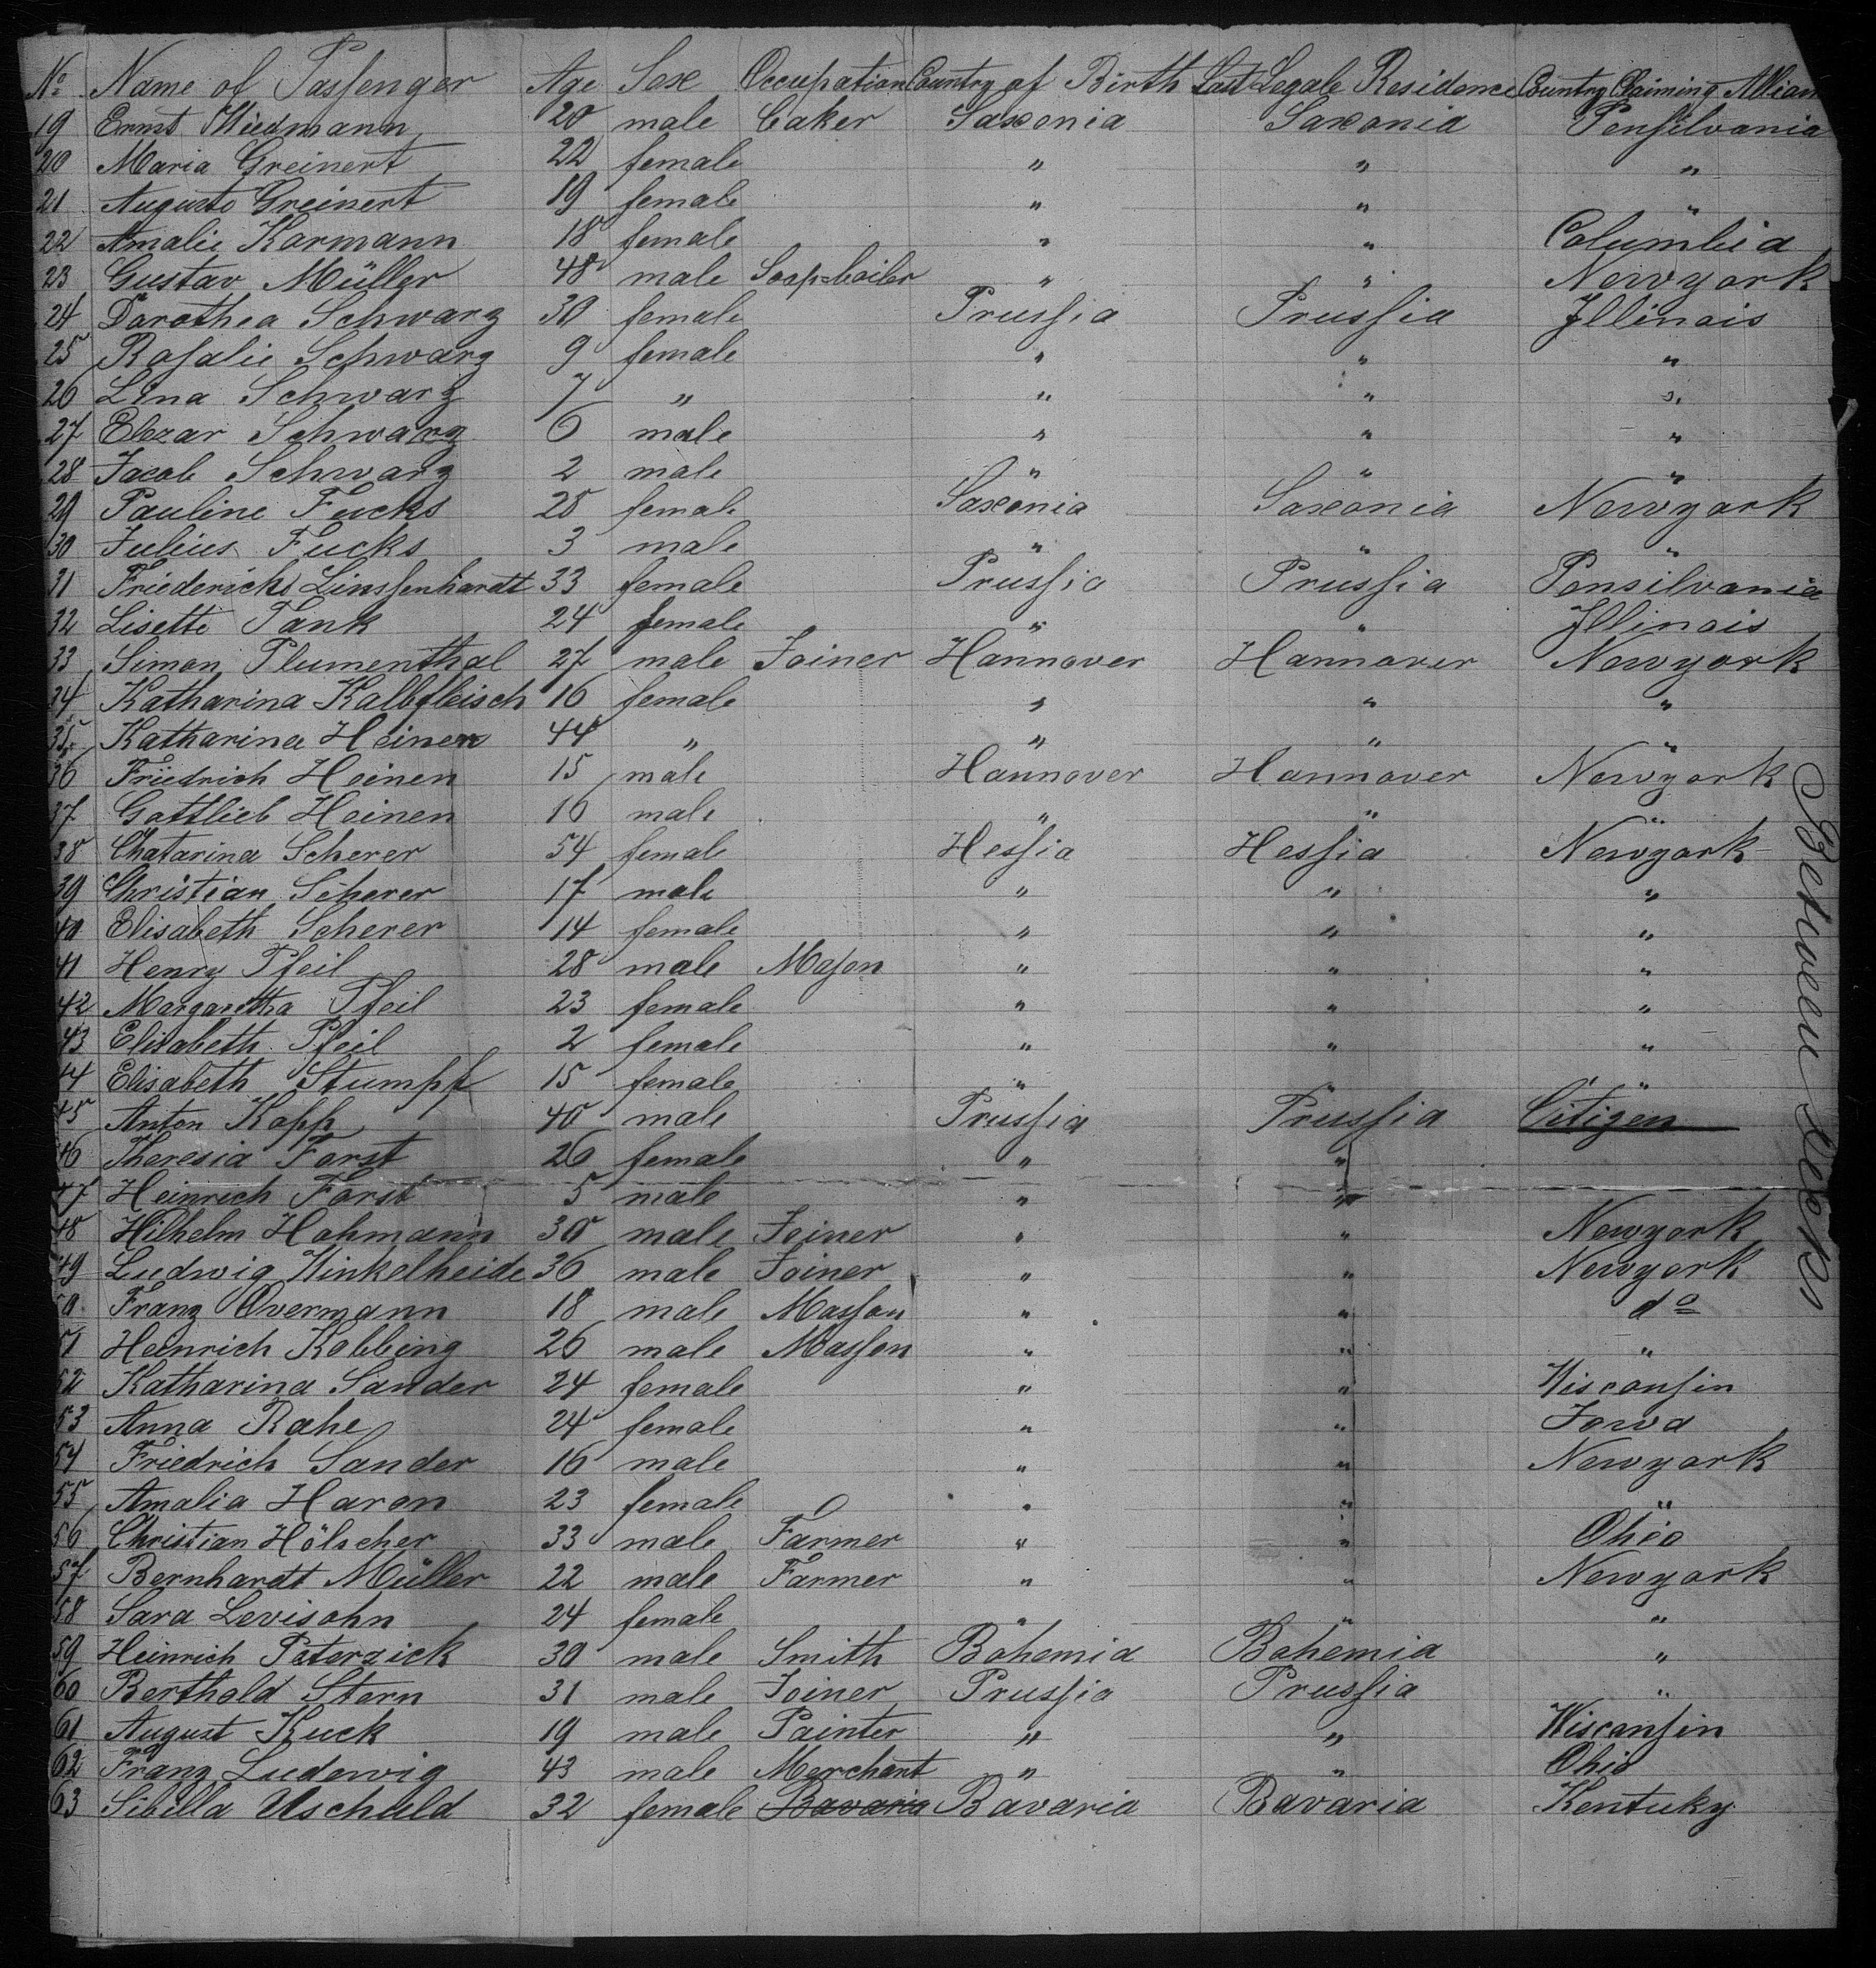 No Name of Passenger Age Sex Occupation Country of Birth Last Legale Residence Country Claiming Allian
19 Ernst Wiedmann 20 male Baker Saxonia Saxonia Pensilvania
20 Maria Greinert 22 female " " "
21 Auguste Greinert 19 female " " "
22 Amalie Karmann 18 female " " Columbia
23 Gustav Müller 48 male Soap-boiler " " Newyork
24 Dorothea Schwarz 30 female Prussia Prussia Illinois
25 Rosalie Schwarz 9 female " " "
26 Lina Schwarz 7 " " " "
27 Elezar Schwarz 6 male " " "
28 Jacob Schwarz 2 male " " "
29 Pauline Fucks 28 female Saxonia Saxonia Newyork
30 Julius Fucks 3 male " " "
31 Friedericke Linssenhardt 33 female Prussia Prussia Pensilvania
32 Lisette Tank 24 female " " Illinois
33 Simon Plumenthal 27 male Joiner Hannover Hannover Newyork
34 Katharina Kalbfleisch 16 female " " "
35 Katharina Heinen 44 " " " "
36 Friedrich Heinen 15 male Hannover Hannover Newyork
37 Gottlieb Heinen 10 male " " "
38 Chatarina Scherer 54 female Hessia Hessia Newyork
39 Christian Scherer 17 male " " "
40 Elisabeth Scherer 14 female " " "
41 Henry Pfeil 28 male Mason " " "
42 Margaretha Pfeil 23 female " " "
43 Elisabeth Pfeil 2 female " " "
44 Elisabeth Stumpf 15 female " " "
45 Anton Kopp 40 male Prussia Prussia Citizen
46 Theresia Forst 26 female " "
47 Heinrich Forst 5 male " "
48 Wilhelm Hohmann 30 male Joiner " " Newyork
49 Ludwig Winkelheide 36 male Joiner " " Newyork
50 Franz Overmann 18 male Masson " " do
51 Heinrich Kobbing 26 male Masson " " "
52 Katharina Sander 24 female " " Wisconsin
53 Anna Rahe 24 female " " Iowa
54 Friedrich Sander 16 male " " Newyork
55 Amalia Haron 23 female " " "
56 Christian Hölscher 33 male Farmer " " Ohio
57 Bernhardt Müller 22 male Farmer " " Newyork
58 Sara Levisohn 24 female " " "
59 Heinrich Peterzick 30 male Smith Bohemia Bohemia "
60 Berthold Stern 31 male Joiner Prussia Prussia "
61 August Kuck 19 male Painter " " Wisconsin
62 Franz Ludewig 43 male Merchant " " Ohio
63 Sibilla Uschuld 32 female Bavaria Bavaria Bavaria Kentuky
Between Decks